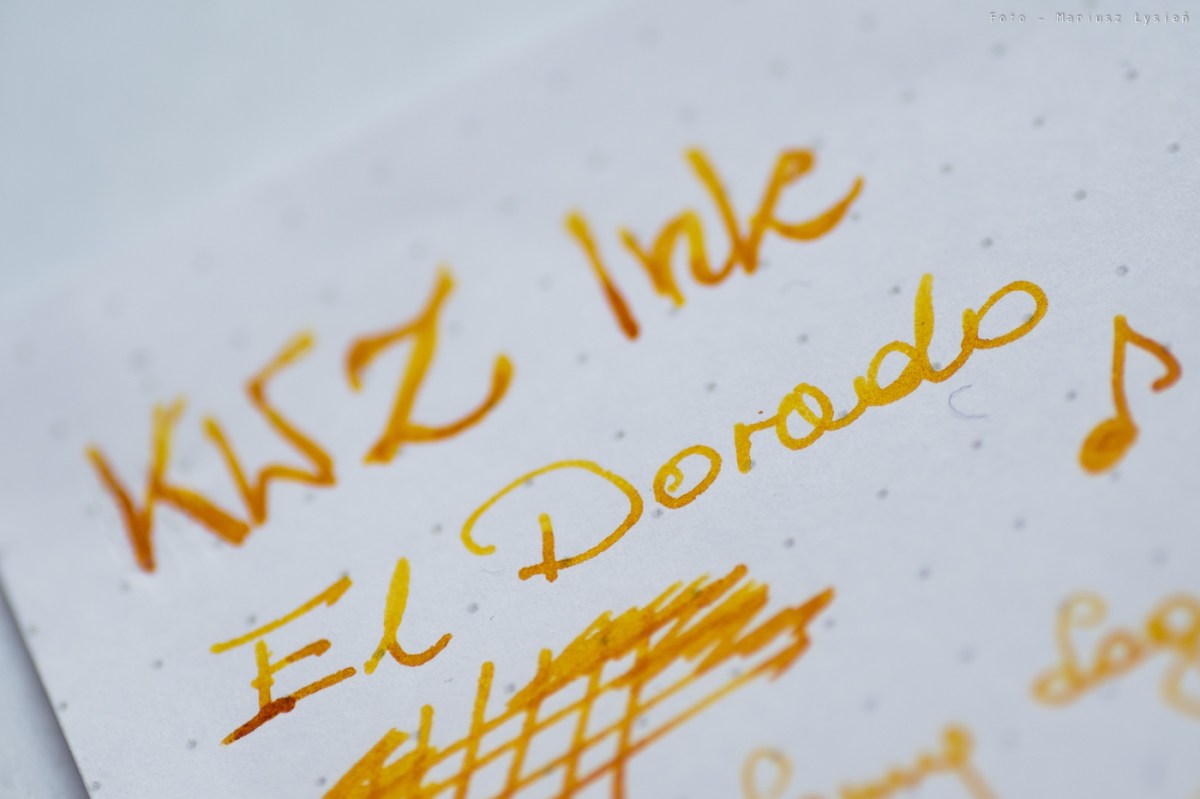 Foto - Mariusz Łysień
KWZ Ink
El Dorado